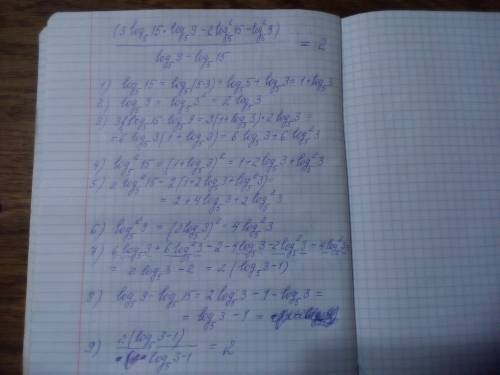 (3 log₅15·log₅9−2log₅²15−log₅²9)
log₅9−log₅15 = 2
1) log₅15 = log₅(5·3)=log₅5+log₅3=1+log₅3
2) log₅9 = log₅3² = 2 log₅3
3) 3log₅15·log₅9=3(1+log₅3)·2log₅3=
=6log₅3(1+log₅3)=6log₅3+6log₅²3
4) log₅²15=(1+log₅3)²=1+2log₅3+log₅²3
5) 2log₅²15=2(1+2log₅3+log₅²3)=
=2+4log₅3+2log₅²3
6) log₅²9=(2log₅3)²=4log₅²3
7) 6log₅3+6log₅²3−2−4log₅3−2log₅²3−4log₅²3=
= 2log₅3−2 = 2(log₅3−1)
8) log₅9−log₅15=2log₅3−1−log₅3=
=log₅3−1=
9) 2(log₅3−1)
log₅3−1 = 2